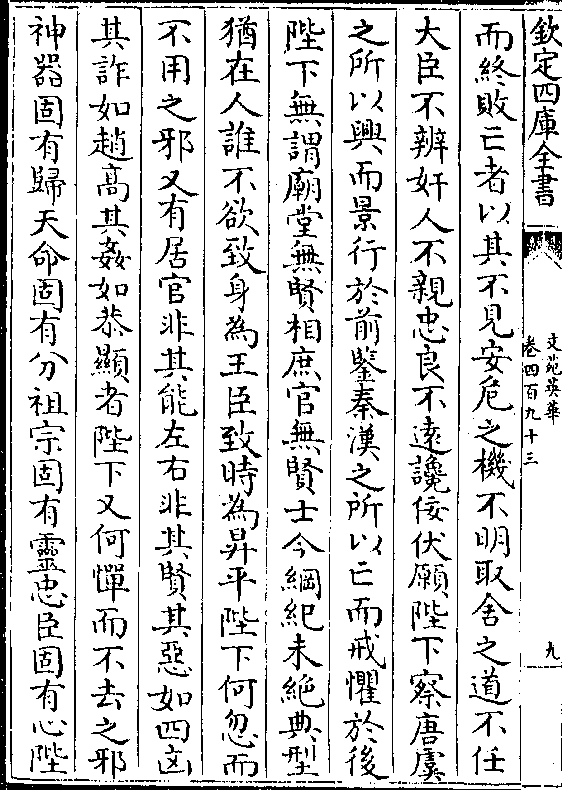 欽定四庫全書
文苑英華
卷四百九十三
九
而終敗亡者以其不見安危之機不明取舍之道不任
大臣不辨奸人不親忠良不遠讒佞伏願陛下察唐虞
之所以興而景行於前鑒秦漢之所以亡而戒懼於後
陛下無謂廟堂無賢相庶官無賢士今綱紀未絶典型
猶在人誰不欲致身為王臣致時為昇平陛下何忽而
不用之邪又有居官非其能左右非其賢其惡如四凶
其詐如趙高其姦如恭顯者陛下又何憚而不去之邪
神器固有歸天命固有分祖宗固有靈忠臣固有心陛